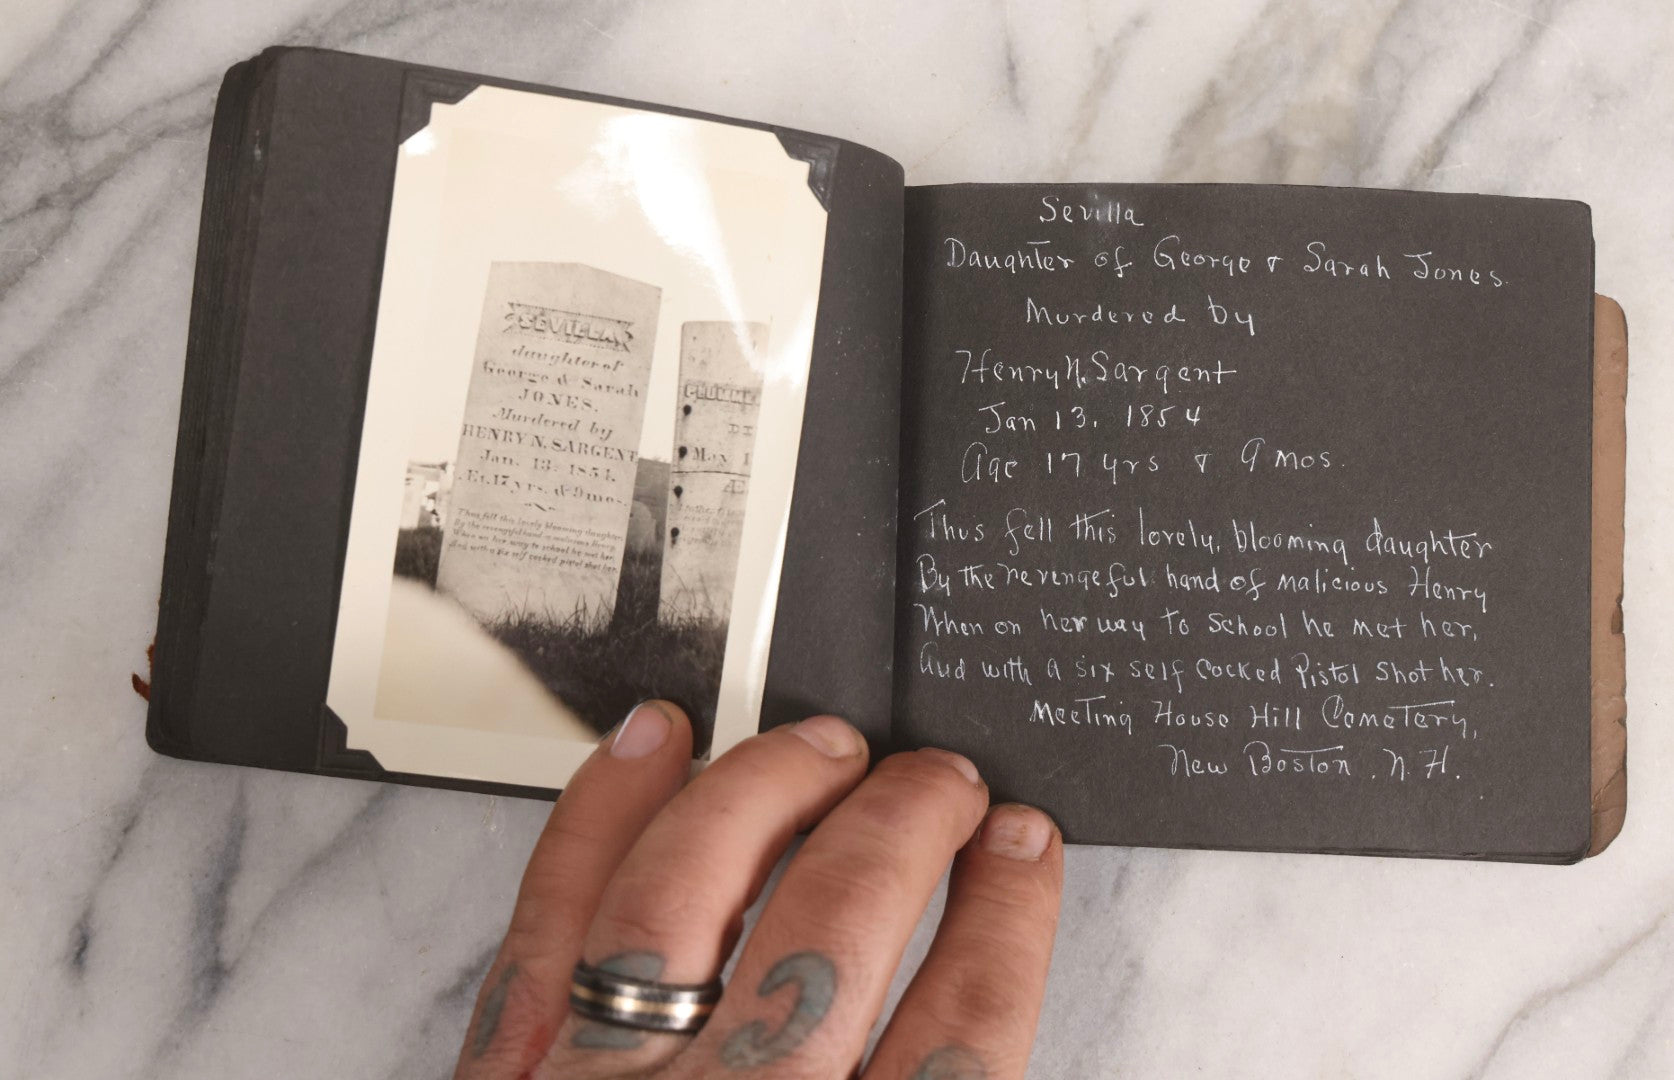 SEVILLA
daughter of
George & Sarah
JONES.
Murdered by
HENRY N. SARGENT
Jan. 13. 1854.
Æt. 17 yrs. & 9 mos.
Thus fell this lovely blooming daughter
By the revengeful hand a malicious Henry
When on her way to school he met her,
And with a six self cocked pistol shot her.
PLUMME
DI
May 1
Æ
Sevilla
Daughter of George & Sarah Jones.
Murdered by
Henry N. Sargent
Jan 13. 1854
Age 17 yrs & 9 mos.
Thus fell this lovely, blooming daughter
By the revengeful hand of malicious Henry
When on her way to school he met her,
And with a six self cocked Pistol shot her.
Meeting House Hill Cemetery,
New Boston. N. H.